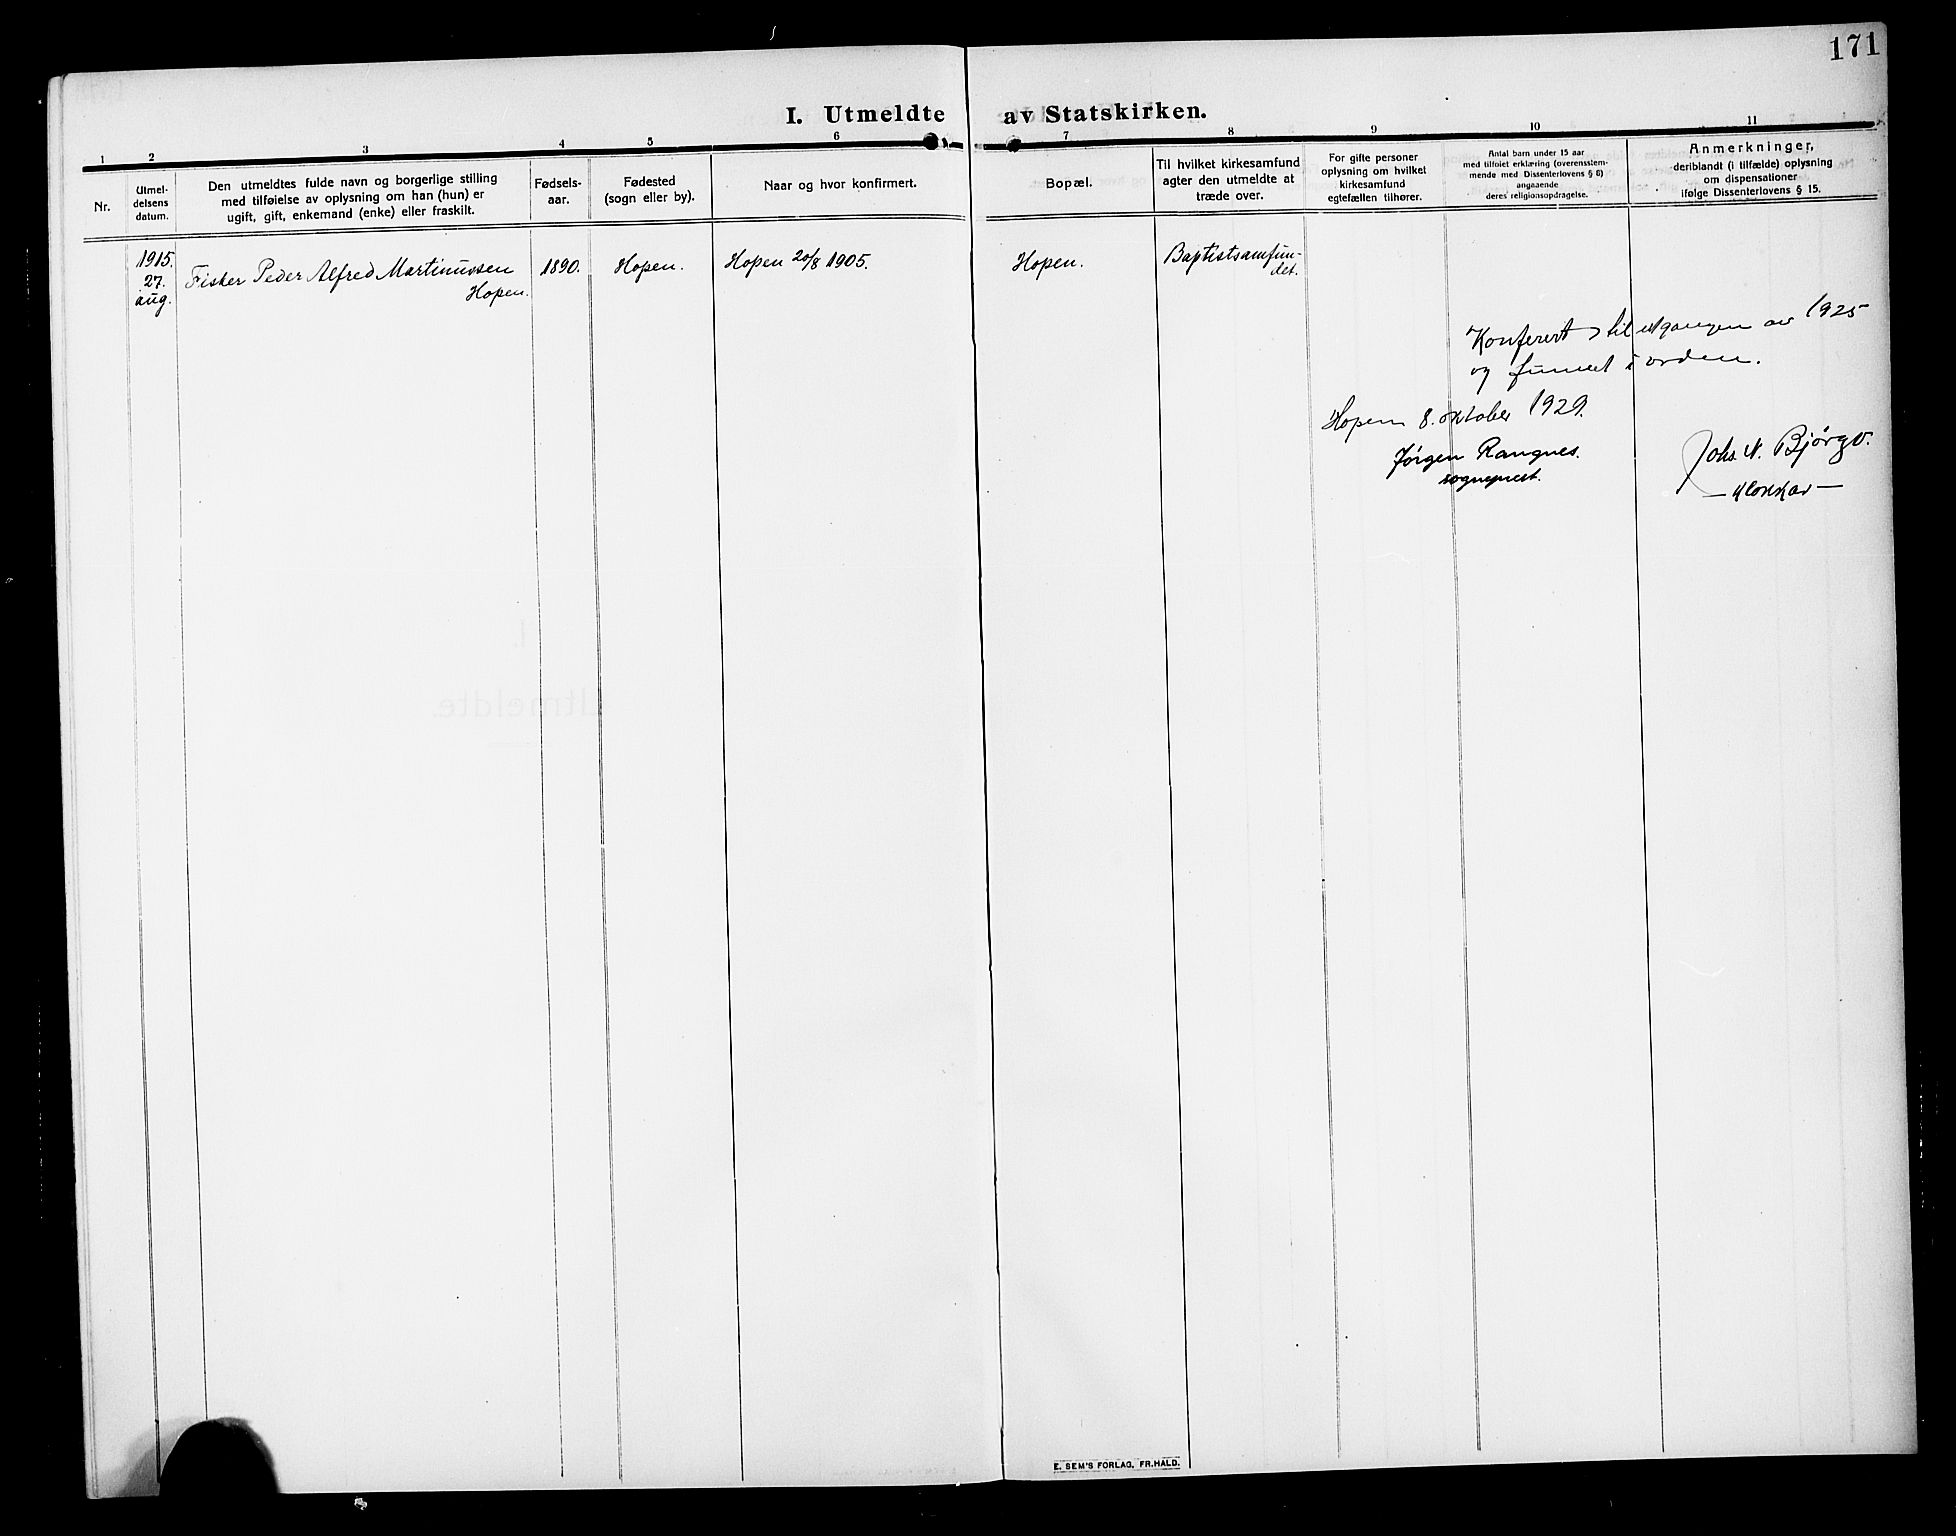 171
I. Utmeldte av Statskirken.
1 2 3 4 5 6 7 8 9 10 11
Nr.
Utmel-
delsens
datum.
Den utmeldtes fulde navn og borgerlige stilling
med tilføielse av oplysning om han (hun) er
ugift, gift, enkemand (enke) eller fraskilt.
Fødsels-
aar.
Fødested
(sogn eller by).
Naar og hvor konfirmert.
Bopæl.
Til hvilket kirkesamfund
agter den utmeldte at
træde over.
For gifte personer
oplysning om hvilket
kirkesamfund
egtefællen tilhører.
Antal barn under 15 aar
med tilføiet erklæring (overensstem-
mende med Dissenterlovens § 6)
angaaende
deres religionsopdragelse.
Anmerkninger,
deriblandt (i tilfælde) oplysning
om dispensationer
ifølge Dissenterlovens § 15.
1915.
27.
aug.
Fisker Peder Alfred Martinussen
Hopen.
1890.
Hopen.
Hopen 20/8 1905.
Hopen.
Baptistsamfun-
det.
Konferert til utgangen av 1925
og funnet i orden.
Hopen 8. oktober 1929.
Jørgen Rangnes.
sogneprest.
Johs. N. Bjørgo.
- klokkar -
E. SEM'S FORLAG, FR.HALD.